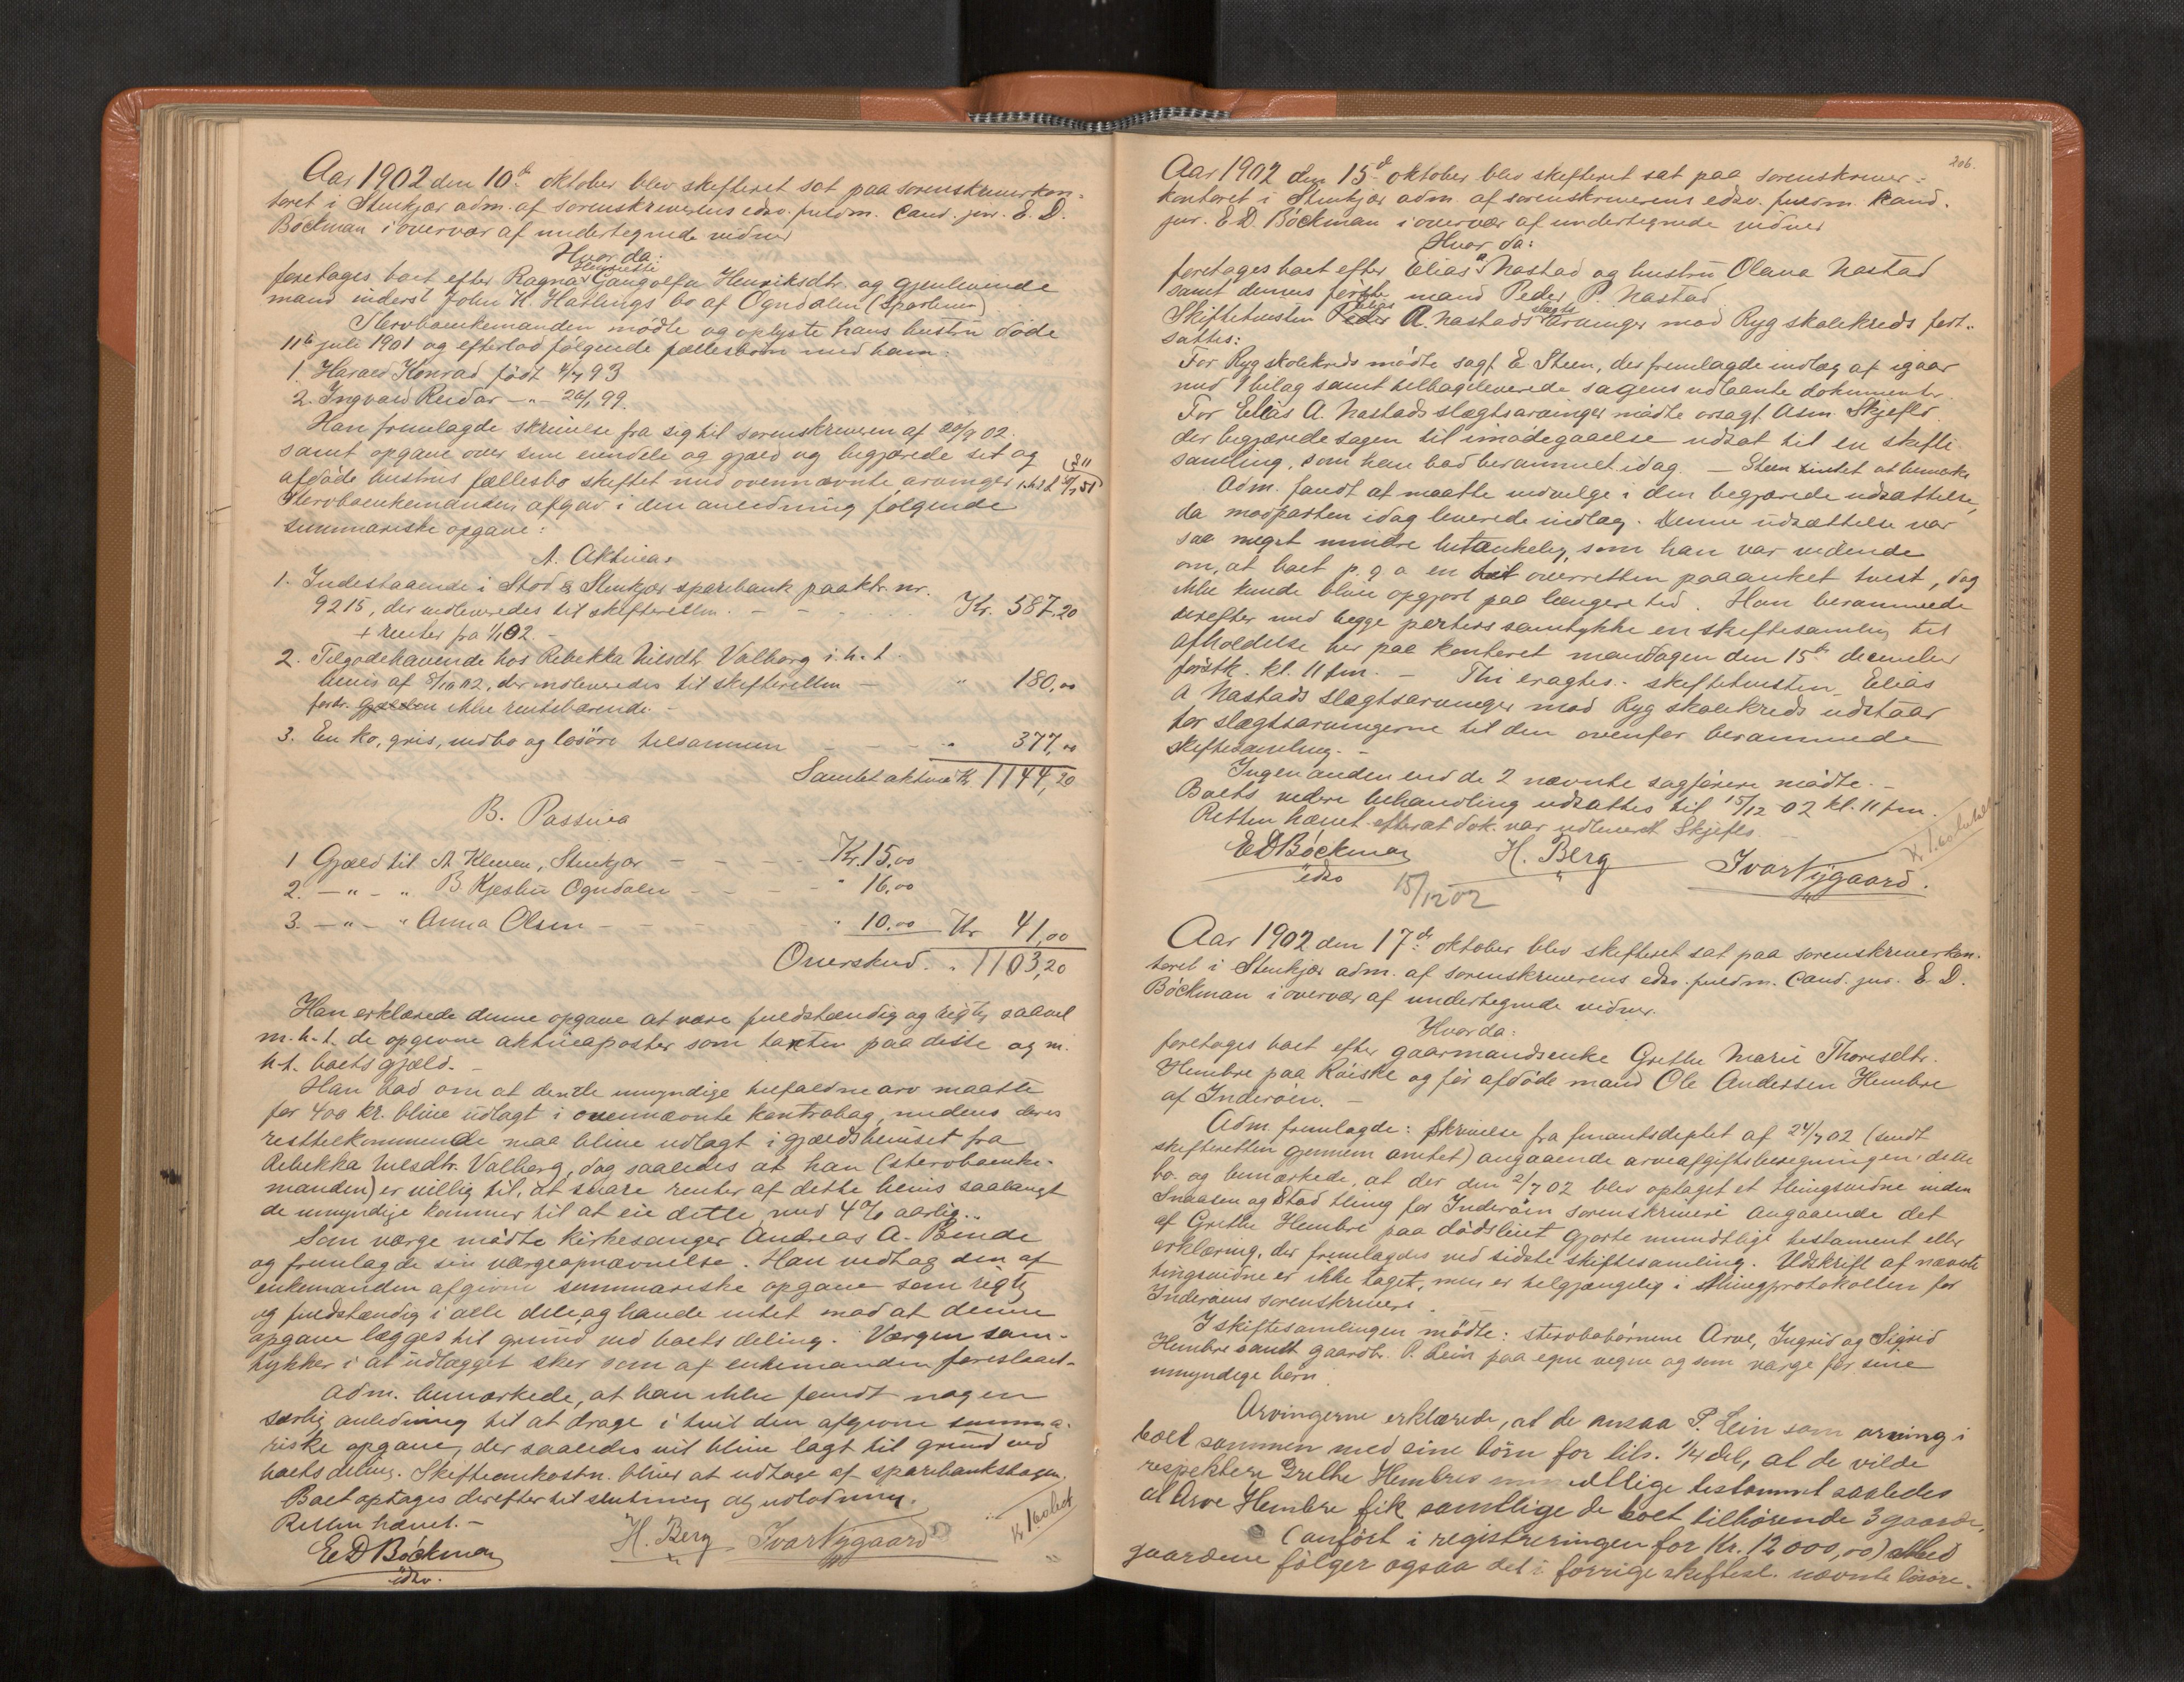 Aar 1902 den 10de oktober blev skifteret sat paa sorenskriverkon-
toret i Stenkjær adm. af sorenskriverens edsv. fuldm. Cand. jur. E. D.
Böckman i overvær af undertegnede vidner
Hvor da:
Henriette
foretoges boet efter Ragna Gangolfa Henriksdtr. og gjenlevende
mand inderst John H. Hatlings bo af Ogndalen (Sparbuen)
Stervboenkemanden mødte og oplyste hans hustru døde
11te juli 1901 og efterlod følgende fællesbörn med ham:
1. Harald Konrad født 4/7 93
2. Ingvald Reidar — " — 20/1 99.
Han fremlagde skrivelse fra sig til sorenskriveren af 20/9 02.
samt opgave over sine eiendele og gjæld og begjærede sit og
afdöde hustrus fællesbo skiftet med ovennævnte arvinger
Stervboenkemanden afgav i den anledning følgende
summariske opgave:
A. Aktiva:
1. Indestaaende i Stod & Stenkjær sparebank paa ktr. nr.
9215, der indleveredes til skifteretten. — — — Kr. 587,20
+ renter fra 1/1 02. —
2. Tilgodehavende hos Rebekka Nilsdtr. Valberg i. h. t.
bevis af 8/10 02, der indleveredes til skifteretten — " 180,00
fordr. gjælden ikke rentebærende. —
3. En ko, gris, indbo og løsöre tilsammen — — — " 377,00
Samlet aktiva Kr. 1144,20
B. Passiva
1 Gjæld til A. Kleven, Stenkjær — — — — Kr. 15,00
2. — " — " B. Kjesbu Ogndalen — — — — " 16,00
3. — " — " Anna Olsen — — — — " 10,00 Kr 41,00
Overskud. " 1103,20
Han erklærede denne opgave at være fuldstændig og rigtig saavel
m. h. t. de opgivne aktivaposter som taxten paa disse og m.
h. t. boets gjæld. —
Han bad om at den de umyndige tilfaldne arv maatte
for 400 kr. blive udlagt i ovennævnte kontrabog, medens deres
resttilkommende maa blive udlagt i gjældsbeviset fra
Rebekka Nilsdtr. Valberg, dog saaledes at han (stervboenke-
manden) er villig til, at svare renter af dette bevis saalangt
de umyndige kommer til at eie dette med 4 % aarlig. —
Som værge mødte kirkesanger Andreas A. Binde
og fremlagde sin værgeopnævnelse. Han vedtog den af
enkemanden afgivne summariske opgave som rigtig
og fuldstændig i alle dele og havde intet mod at denne
opgave lægges til grund ved boets deling. Værgen sam-
tykker i at udlægget sker som af enkemanden foreslaaet. —
Adm. bemærkede, at han ikke fandt nogen
særlig anledning til at drage i tvil den afgivne summa-
riske opgave, der saaledes vil blive lagt til grund ved
boets deling. Skifteomkostn. bliver at udtage af sparebanksbogen.
Boet optages derefter til slutning og udlodning.
Retten hævet. —
ED Böckman H. Berg Ivar Nygaard
edsv.
206.
Aar 1902 den 15de oktober blev skifteret sat paa sorenskriver-
kontoret i Stenkjær adm. af sorenskriverens edsv. fuldm. Kand.
jur. E. D. Böckman i overvær af undertegnede vidner
Hvor da:
foretoges boet efter Elias A. Nastad og hustru Olava Nastad
samt dennes første mand Peder P. Nastad.
Elias slægts
Skiftetvisten Peder A. Nastads arvinger mod Ryg skolekreds fort-
sattes:
For Ryg skolekreds mødte sagf. E. Steen, der fremlagde indlæg af igaar
med 1 bilag samt tilbageleverede sagens udlaante dokumenter.
For Elias A. Nastads slægtsarvinger mødte orsagf. Asm. Skjefls
der begjærede sagen til imødegaaelse udsat til en skifte
samling, som han bad berammet idag. — Steen intet at bemærke
Adm. fandt at maatte indvilge i den begjærede udsættelse,
da modparten idag leverede indlæg. Denne udsættelse var
saa meget mindre betænkelig, som han var vidende
om, at boet p. g. a. en til overretten paaanket tvist, dog
ikke kunde blive opgjort paa længere tid. Han berammede
derefter med begge parters samtykke en skiftesamling til
afholdelse her paa kontoret mandagen den 15de december
førstk. kl. 11 fm. — Thi eragtes. Skiftetvisten Elias
A Nastads slægtsarvinger mod Ryg skolekreds udstaar
for slægtsarvingerne til den ovenfor berammede
skiftesamling. —
Ingen anden end de 2 nævnte sagførere mødte. —
Boets videre behandling udsattes til 15/12 02 kl. 11 fm.
Retten hævet efterat dok. var udleveret Skjefls.
ED Böckman H. Berg Ivar Nygaard.
edsv
15/12 02
Aar 1902 den 17de oktober blev skifteret sat paa sorenskriverkon-
toret i Stenkjær adm. af sorenskriverens edsv. fuldm. Cand. jur. E. D.
Böckman i overvær af undertegnede vidner.
Hvor da:
foretoges boet efter gaardmandsenke Grethe Marie Thoresdtr.
Hembre paa Röiske og før afdøde mand Ole Andersen Hembre
af Inderöen. —
Adm. fremlagde: Skrivelse fra finantsdeptet af 24/7 02 (sendt
skifteretten gjennem amtet) angaaende arveafgiftsberegningen i dette
bo. og bemærkede, at der den 2/7 02 blev optaget et thingsvidne inden
Snaasen og Stod thing for Inderöen sorenskriveri angaaende det
af Grethe Hembre paa dødsleiet gjorte mundtlige testament eller
erklæring, der fremlagdes ved sidste skiftesamling. Udskrift af nævnte
tingsvidne er ikke taget, men er tilgjængelig i thingprotokollen for
Inderöens sorenskriveri.
I skiftesamlingen mødte: stervbobörnene Arve, Ingrid og Sigrid
Hembre samt gaardbr. P. Lein paa egne vegne og som værge for sine
umyndige børn.
Arvingerne erklærede, at de ansaa P. Lein som arving i
boet sammen med sine börn for tils. 1/4 del, at de vilde
respektere Grethe Hembres mundtlige testament saaledes
at Arve Hembre fik samtlige de boet tilhörende 3 gaarde,
(anført i registreringen for Kr. 12 000,00) Med
gaardene fölger ogsaa det i forrige skiftesl. nævnte lösöre.